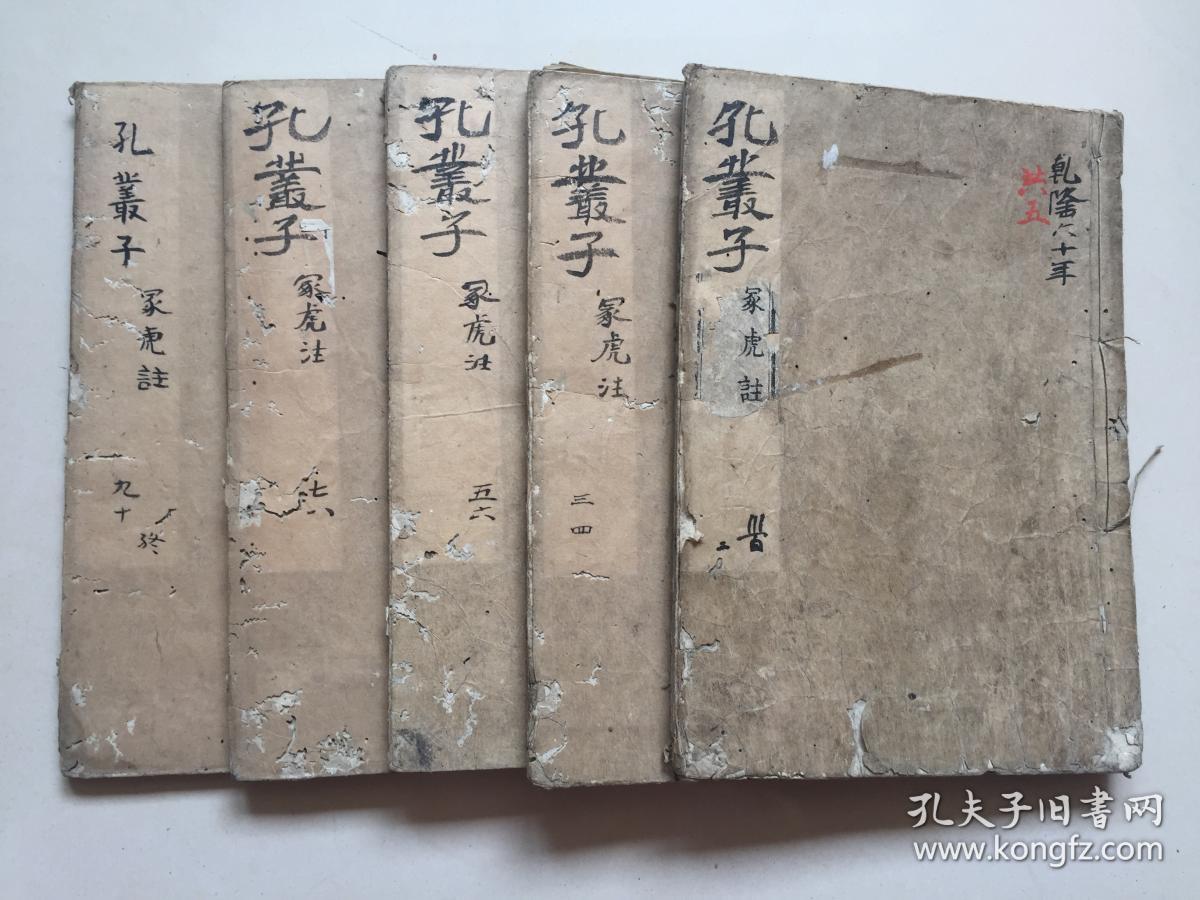 乾隆六十年
共五
孔叢子
冢虎註
二
孔叢子
冢虎注
三四
孔叢子
冢虎注
五六
孔叢子
冢虎注
七八
孔叢子
冢虎註
九十
终
孔夫子旧书网
www.kongfz.com